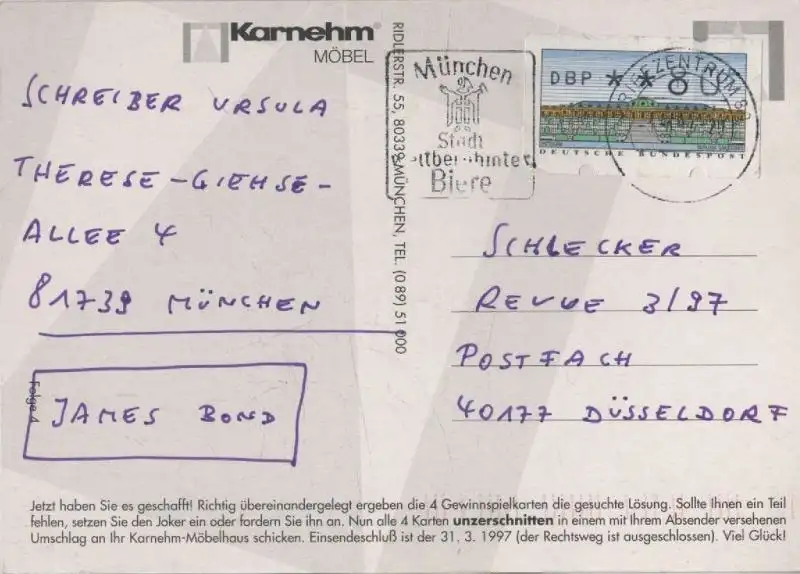 Karnehm
MÖBEL
RIDLERSTR. 55, 80339 MÜNCHEN, TEL. (0 89) 51 000
München
Stadt
Biere
DBP * * 80
DEUTSCHE BUNDESPOST
SCHREIBER URSULA
THERESE-GIEHSE-
ALLEE 4
81739 MÜNCHEN
Folge 4
JAMES BOND
SCHLECKER
REVUE 3/97
POSTFACH
40177 DÜSSELDORF
Jetzt haben Sie es geschafft! Richtig übereinandergelegt ergeben die 4 Gewinnspielkarten die gesuchte Lösung. Sollte Ihnen ein Teil
fehlen, setzen Sie den Joker ein oder fordern Sie ihn an. Nun alle 4 Karten unzerschnitten in einem mit Ihrem Absender versehenen
Umschlag an Ihr Karnehm-Möbelhaus schicken. Einsendeschluß ist der 31. 3. 1997 (der Rechtsweg ist ausgeschlossen). Viel Glück!